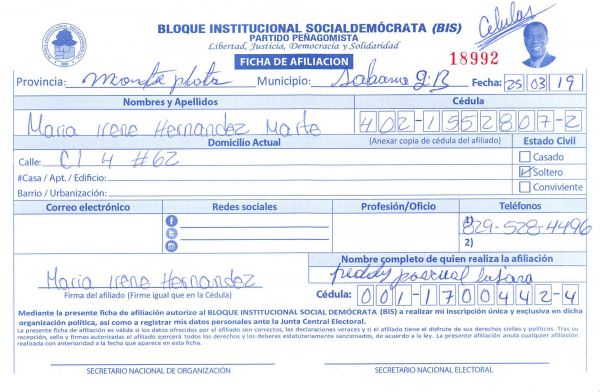 BLOQUE INSTITUCIONAL SOCIALDEMÓCRATA (BIS)
PARTIDO PEÑAGOMISTA
Libertad, Justicia, Democracia y Solidaridad
FICHA DE AFILIACION
18992
Provincia: Monte plata Municipio: Sabana G.B Fecha: 25 03 19
Nombres y Apellidos Cédula
Maria Irene Hernandez Marte 402-1552807-2
Domicilio Actual (Anexar copia de cédula del afiliado) Estado Civil
Calle: C/ 4 #62 Casado
#Casa / Apt. / Edificio: Soltero
Barrio / Urbanización: Conviviente
Correo electrónico Redes sociales Profesión/Oficio Teléfonos
1) 829-528-4496
2)
Nombre completo de quien realiza la afiliación
Maria Irene Hernandez
Firma del afiliado (Firme igual que en la Cédula)
pascual
Cédula: 001-1700442-4
Mediante la presente ficha de afiliación autorizo al BLOQUE INSTITUCIONAL SOCIAL DEMÓCRATA (BIS) a realizar mi inscripción única y exclusiva en dicha
organización política, así como a registrar mis datos personales ante la Junta Central Electoral.
La presente ficha de afiliación es valida si los datos ofrecidos por el afiliado son correctos, las declaraciones veraces y si el afiliado tiene el disfrute de sus derechos civiles y políticos. Tras su
recepción, sello y firmas autorizadas el afiliado ejercerá todos los derechos y los deberes estatutariamente sancionados, de acuerdo a la ley. La presente afiliación anula cualquier afiliación
realizada con anterioridad a la fecha que aparece en esta ficha.
SECRETARIO NACIONAL DE ORGANIZACIÓN SECRETARIO NACIONAL ELECTORAL